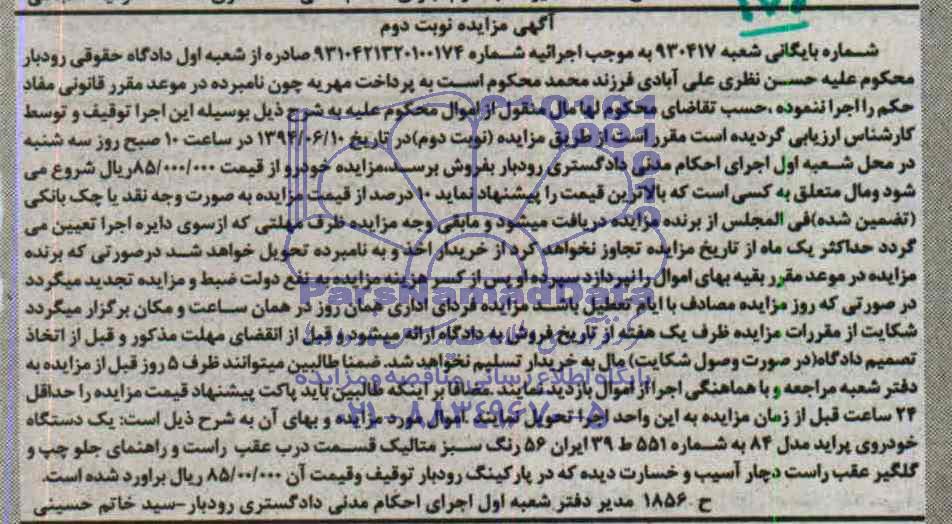 آگهی مزایده نوبت دوم
شماره بایگانی شعبه ۹۳۰۴۱۷ به موجب اجرائیه شماره ۹۳۱۰۴۲۱۳۲۰۱۰۰۱۷۴ صادره از شعبه اول دادگاه حقوقی رودبار
محکوم علیه حسن نظری علی آبادی فرزند محمد محکوم است به پرداخت مهریه چون نامبرده در موعد مقرر قانونی مفاد
حکم را اجرا ننموده ،حسب تقاضای محکوم لها مال منقول از اموال محکوم علیه به شرح ذیل بوسیله این اجرا توقیف و توسط
کارشناس ارزیابی گردیده است مقرر است از طریق مزایده (نوبت دوم)در تاریخ ۱۳۹۴/۰۶/۱۰ در ساعت ۱۰ صبح روز سه شنبه
در محل شعبه اول اجرای احکام مدنی دادگستری رودبار بفروش برسد،مزایده خودرو از قیمت ۸۵/۰۰۰/۰۰۰ریال شروع می
شود ومال متعلق به کسی است که بالاترین قیمت را پیشنهاد نماید ۱۰درصد از قیمت مزایده به صورت وجه نقد یا چک بانکی
(تضمین شده)فی المجلس از برنده مزایده دریافت میشود و مابقی وجه مزایده ظرف مهلتی که ازسوی دایره اجرا تعیین می
گردد حداکثر یک ماه از تاریخ مزایده تجاوز نخواهد کرد از خریدار اخذ و به نامبرده تحویل خواهد شد درصورتی که برنده
مزایده در موعد مقرر بقیه بهای اموال را نپردازد سپرده او پس از کسر هزینه مزایده به نفع دولت ضبط و مزایده تجدید میگردد
در صورتی که روز مزایده مصادف با ایام تعطیل باشد مزایده فردای اداری همان روز در همان ساعت و مکان برگزار میگردد
شکایت از مقررات مزایده ظرف یک هفته از تاریخ فروش به دادگاه ارائه میشود و قبل از انقضای مهلت مذکور و قبل از اتخاذ
تصمیم دادگاه(در صورت وصول شکایت) مال به خریدار تسلیم نخواهد شد. ضمنا طالبین میتوانند ظرف ۵ روز قبل از مزایده به
دفتر شعبه مراجعه و با هماهنگی اجرا از اموال بازدید نمایند. مضافا بر اینکه طالبین باید پاکت پیشنهاد قیمت مزایده را حداقل
۲۴ ساعت قبل از زمان مزایده به این واحد اجرا تحویل نمایند. اموال مورد مزایده و بهای آن به شرح ذیل است: یک دستگاه
خودروی پراید مدل ۸۴ به شماره ۵۵۱ ط ۳۹ ایران ۵۶ رنگ سبز متالیک قسمت درب عقب راست و راهنمای جلو چپ و
گلگیر عقب راست دچار آسیب و خسارت دیده که در پارکینگ رودبار توقیف وقیمت آن ۸۵/۰۰/۰۰۰ ریال براورد شده است.
ح ۱۸۵۶ مدیر دفتر شعبه اول اجرای احکام مدنی دادگستری رودبار-سید خاتم حسینی
ParsNamadData
پایگاه اطلاع رسانی مناقصه و مزایده
۰۲۱-۸۸۳۴۹۶۷۰-۵